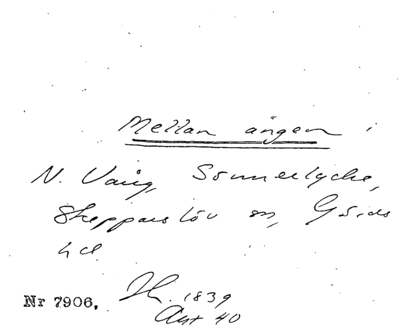 Mellan ängen i
N. Vång, Sönnerlycke,
Skepparslöv sn, Gärds
hd
Nr 7906. 1839
Akt 40